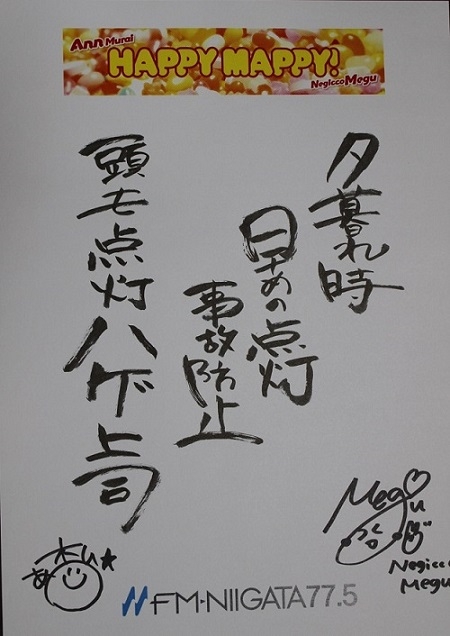 Ann Murai
HAPPY MAPPY!
Negicco Megu
夕暮れ時
早めの点灯
事故防止
頭も点灯ハゲ上司
Megu♡
Negicco
Megu
あんい★
FM-NIIGATA77.5